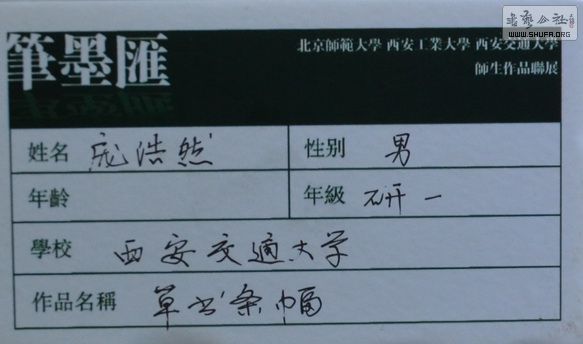 書藝公社
WWW.SHUFA.ORG
筆墨匯
北京師範大學 西安工業大學 西安交通大學
師生作品聯展
姓名 庞浩然 性别 男
年齡 年級 研一
學校 西安交通大学
作品名稱 草书条幅